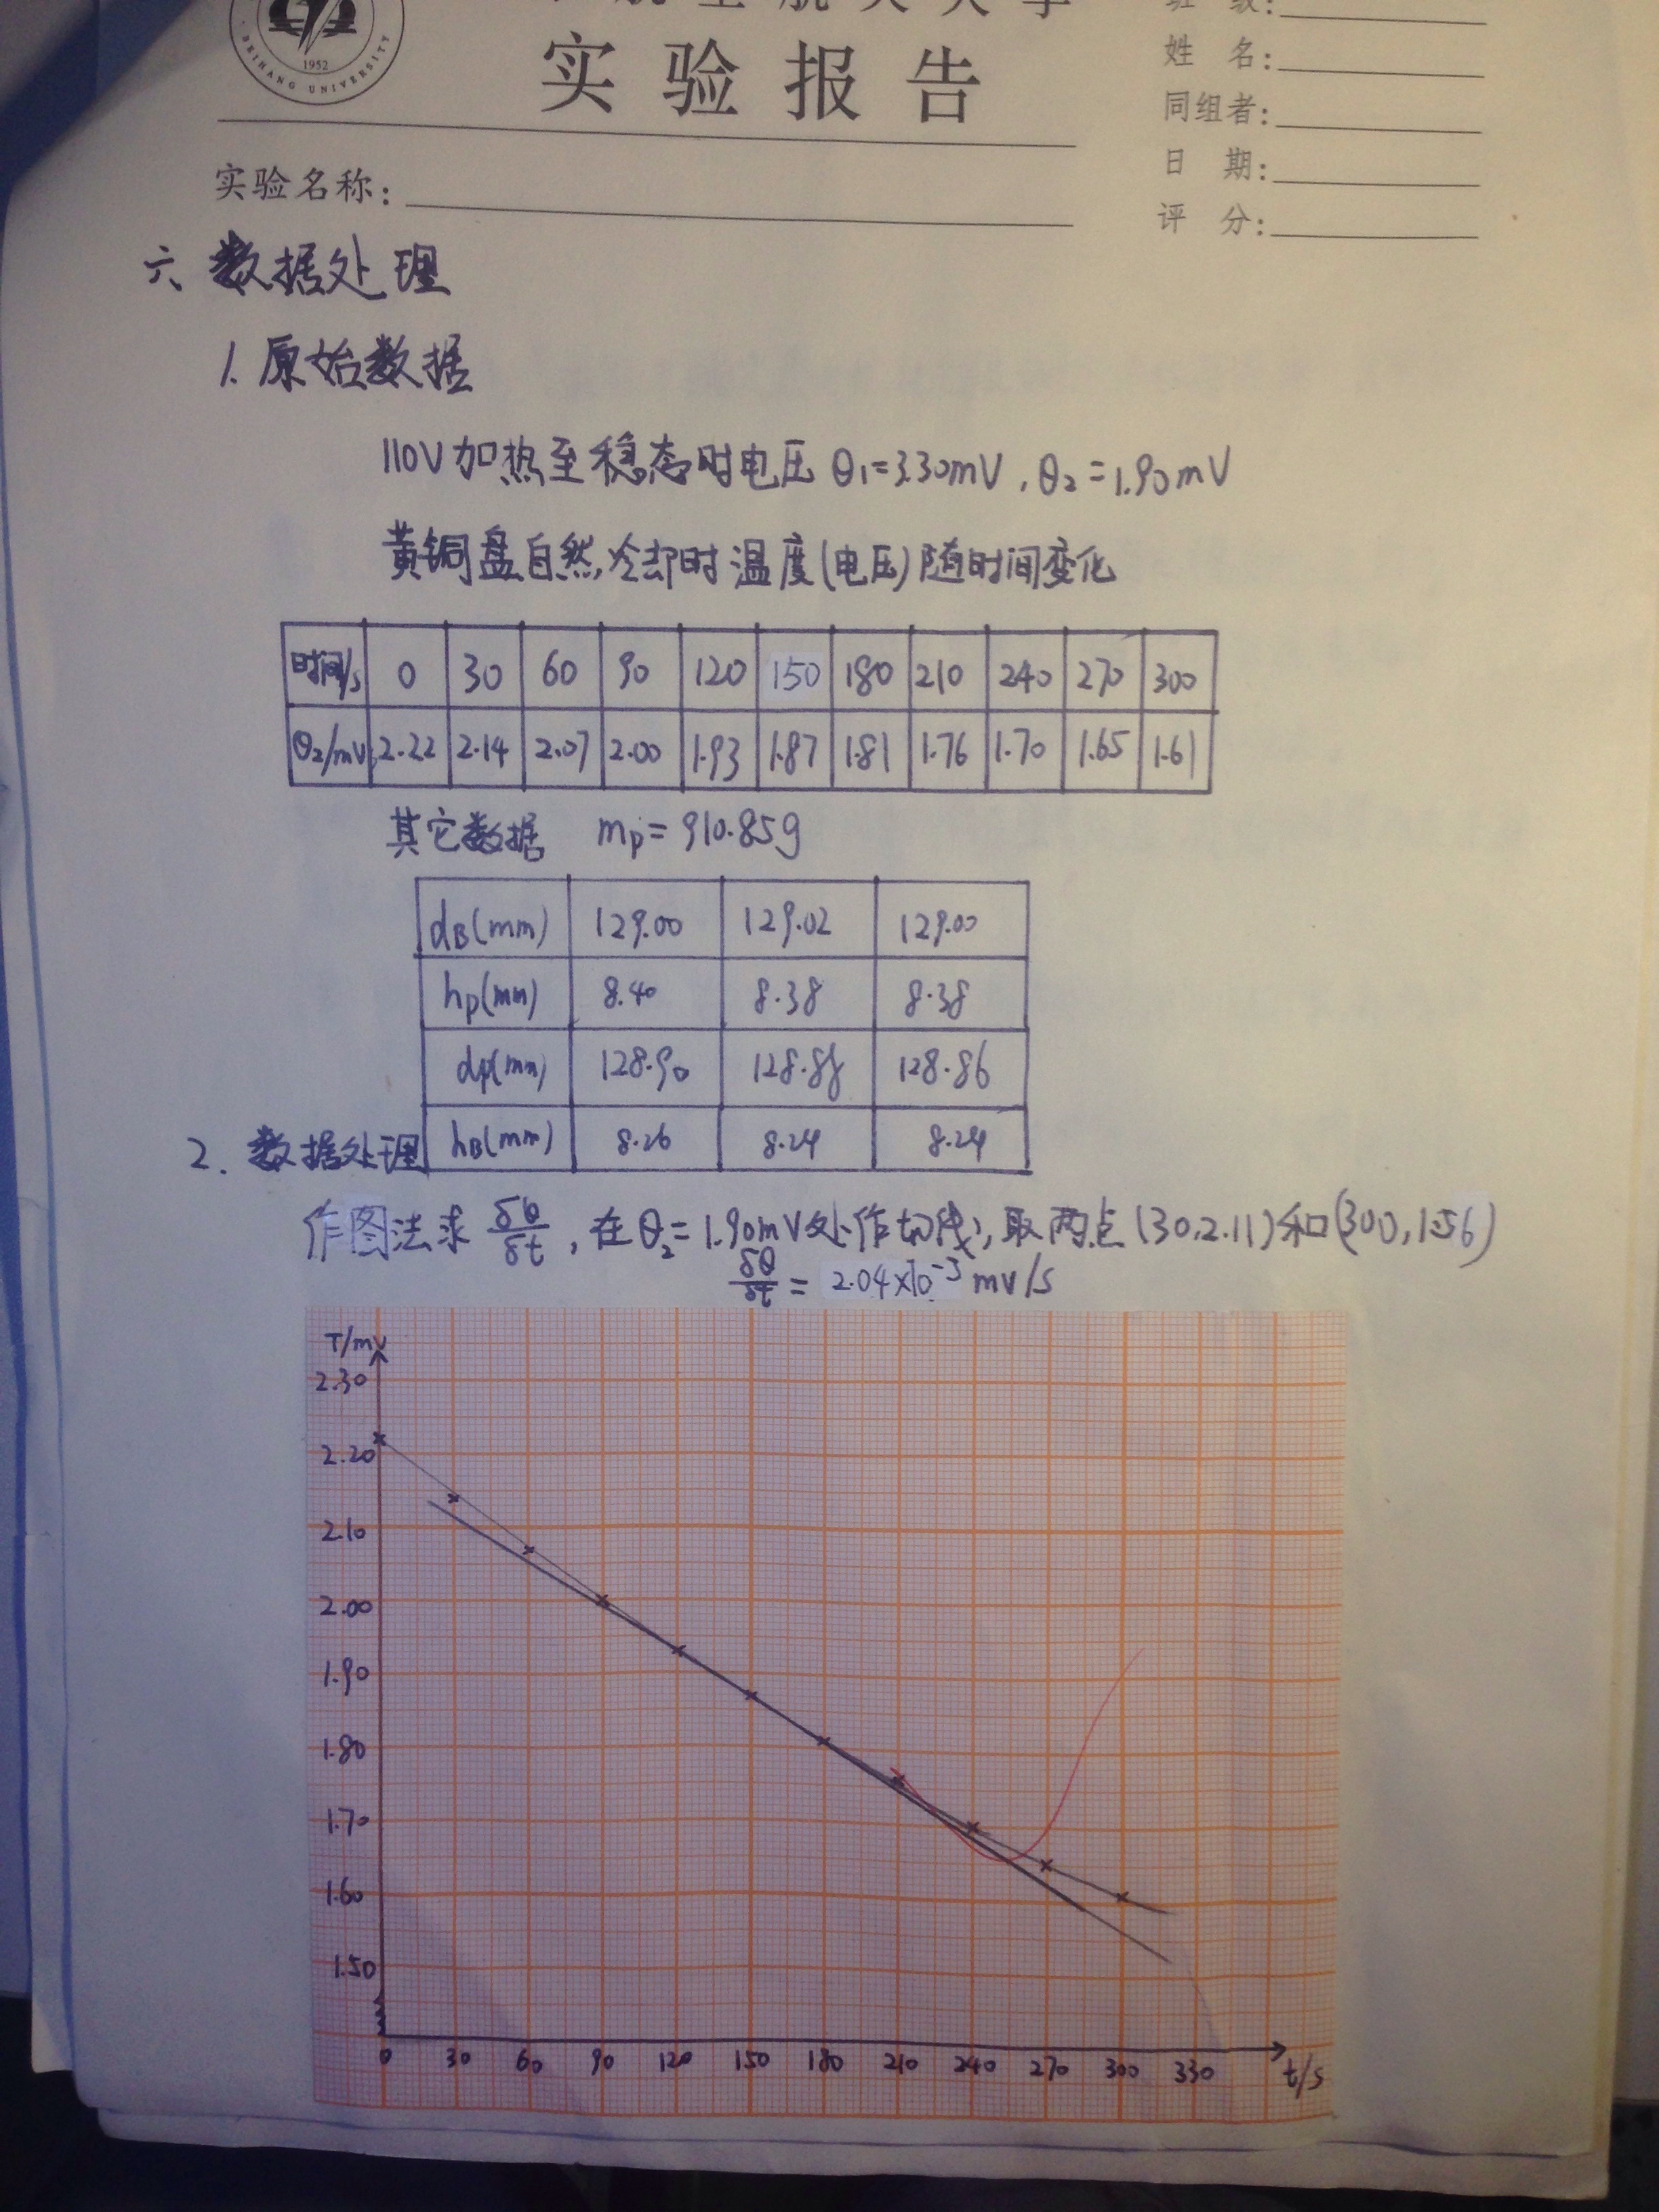 BEIHANG UNIVERSITY
1952
实验报告
班 级:
姓 名:
同组者:
日 期:
评 分:
实验名称:
六、数据处理
1. 原始数据
110V加热至稳态时电压 θ1=3.30mV, θ2=1.90mV
黄铜盘自然冷却时温度(电压)随时间变化
时间/s 0 30 60 90 120 150 180 210 240 270 300
θ2/mV 2.22 2.14 2.07 2.00 1.93 1.87 1.81 1.76 1.70 1.65 1.61
其它数据 mp=910.85g
dB(mm) 129.00 129.02 129.00
hp(mm) 8.40 8.38 8.38
dp(mm) 128.90 128.88 128.86
hB(mm) 8.26 8.24 8.24
2. 数据处理
作图法求 δθ/δt, 在θ2=1.90mV处作切线, 取两点(30,2.11)和(300,1.56)
δθ/δt = 2.04×10⁻³ mv/s
T/mV
2.30
2.20
2.10
2.00
1.90
1.80
1.70
1.60
1.50
0 30 60 90 120 150 180 210 240 270 300 330
t/s